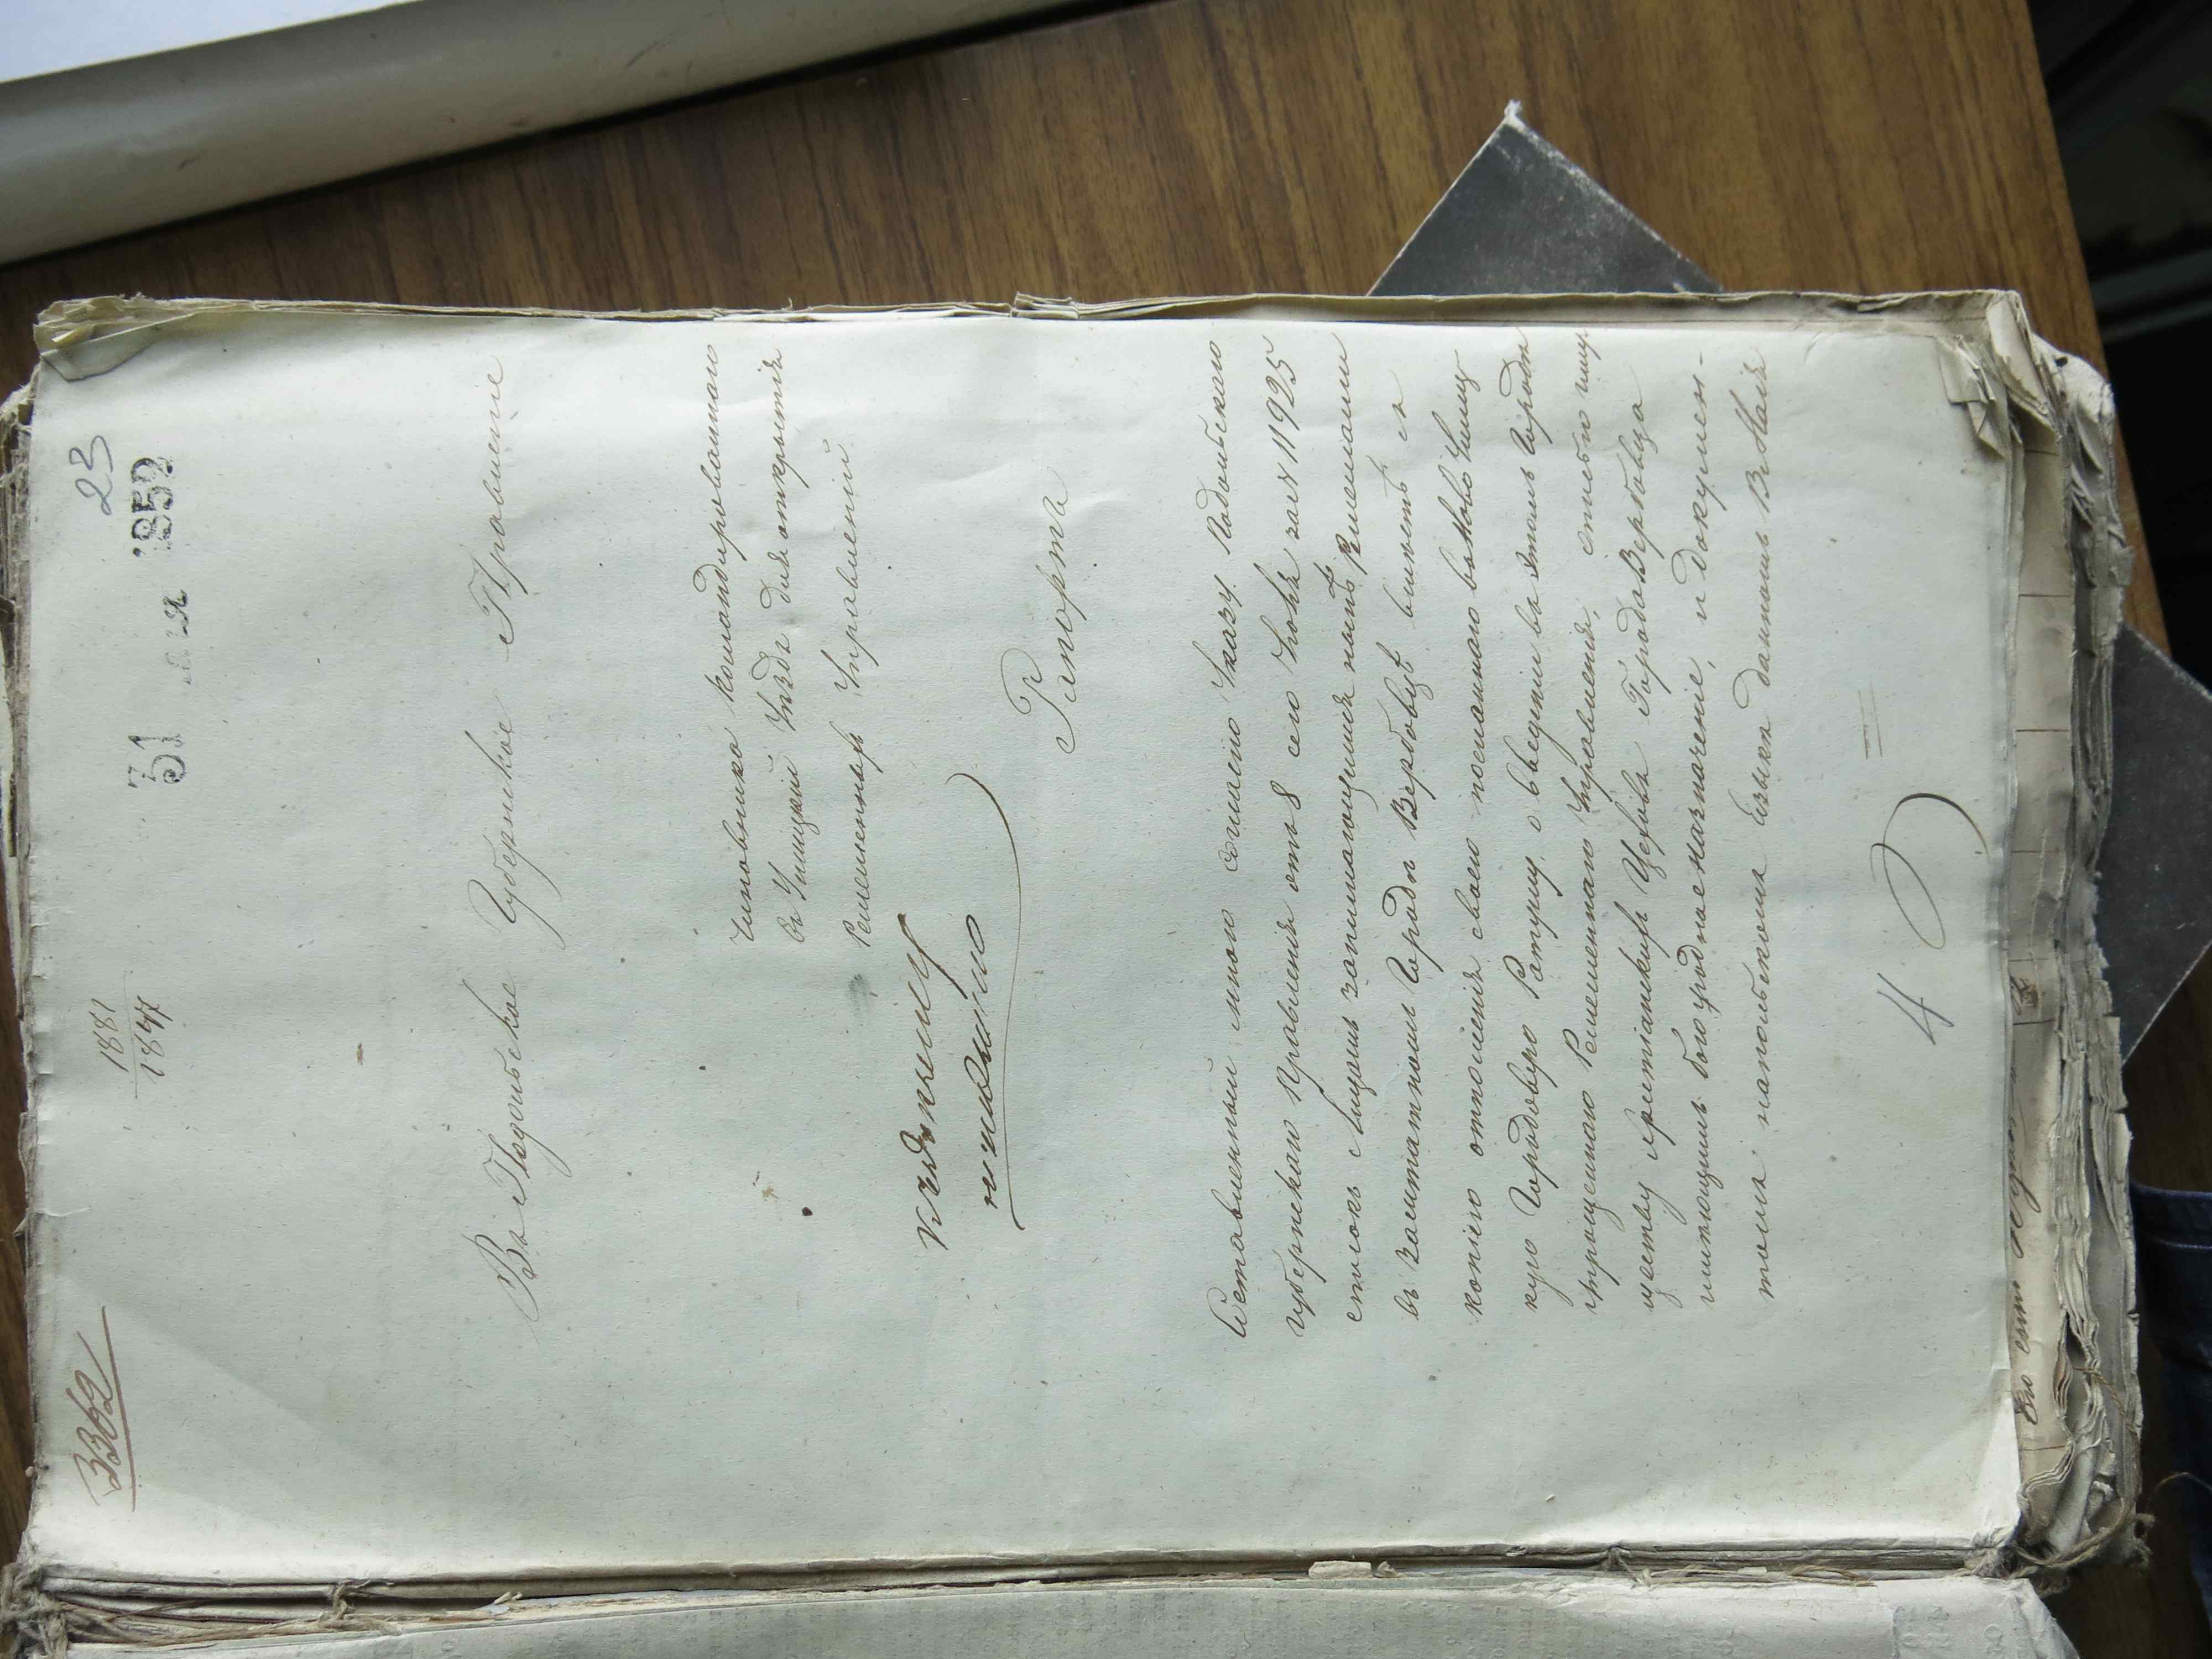 3362
1881
1847
23
31 мая 1852
Въ Подольское Губернское Правленіе
Чиновника командированнаго
въ Ушицкій Уѣздъ для открытія
Ремесленныхъ Управленій
Рапортъ
Составленный мною согласно Указу Подольскаго
Губернскаго Правленія отъ 8 сего Іюля за № 11925
списокъ лицамъ занимающимся нынѣ Ремеслами
въ Заштатномъ Городѣ Вербовцѣ вмѣстѣ съ
копіею отношенія своего посланнаго въ Ново Ушиц
кую Городовую Ратушу, о введеніи въ этомъ Городѣ
упрощеннаго Ремесленнаго Управленія,
ществу христіанскихъ Цеховъ Города Вербовца
имѣющимъ богоугодное Назначеніе, и докумен-
томъ на польскомъ языкѣ даннымъ въ Маѣ
4